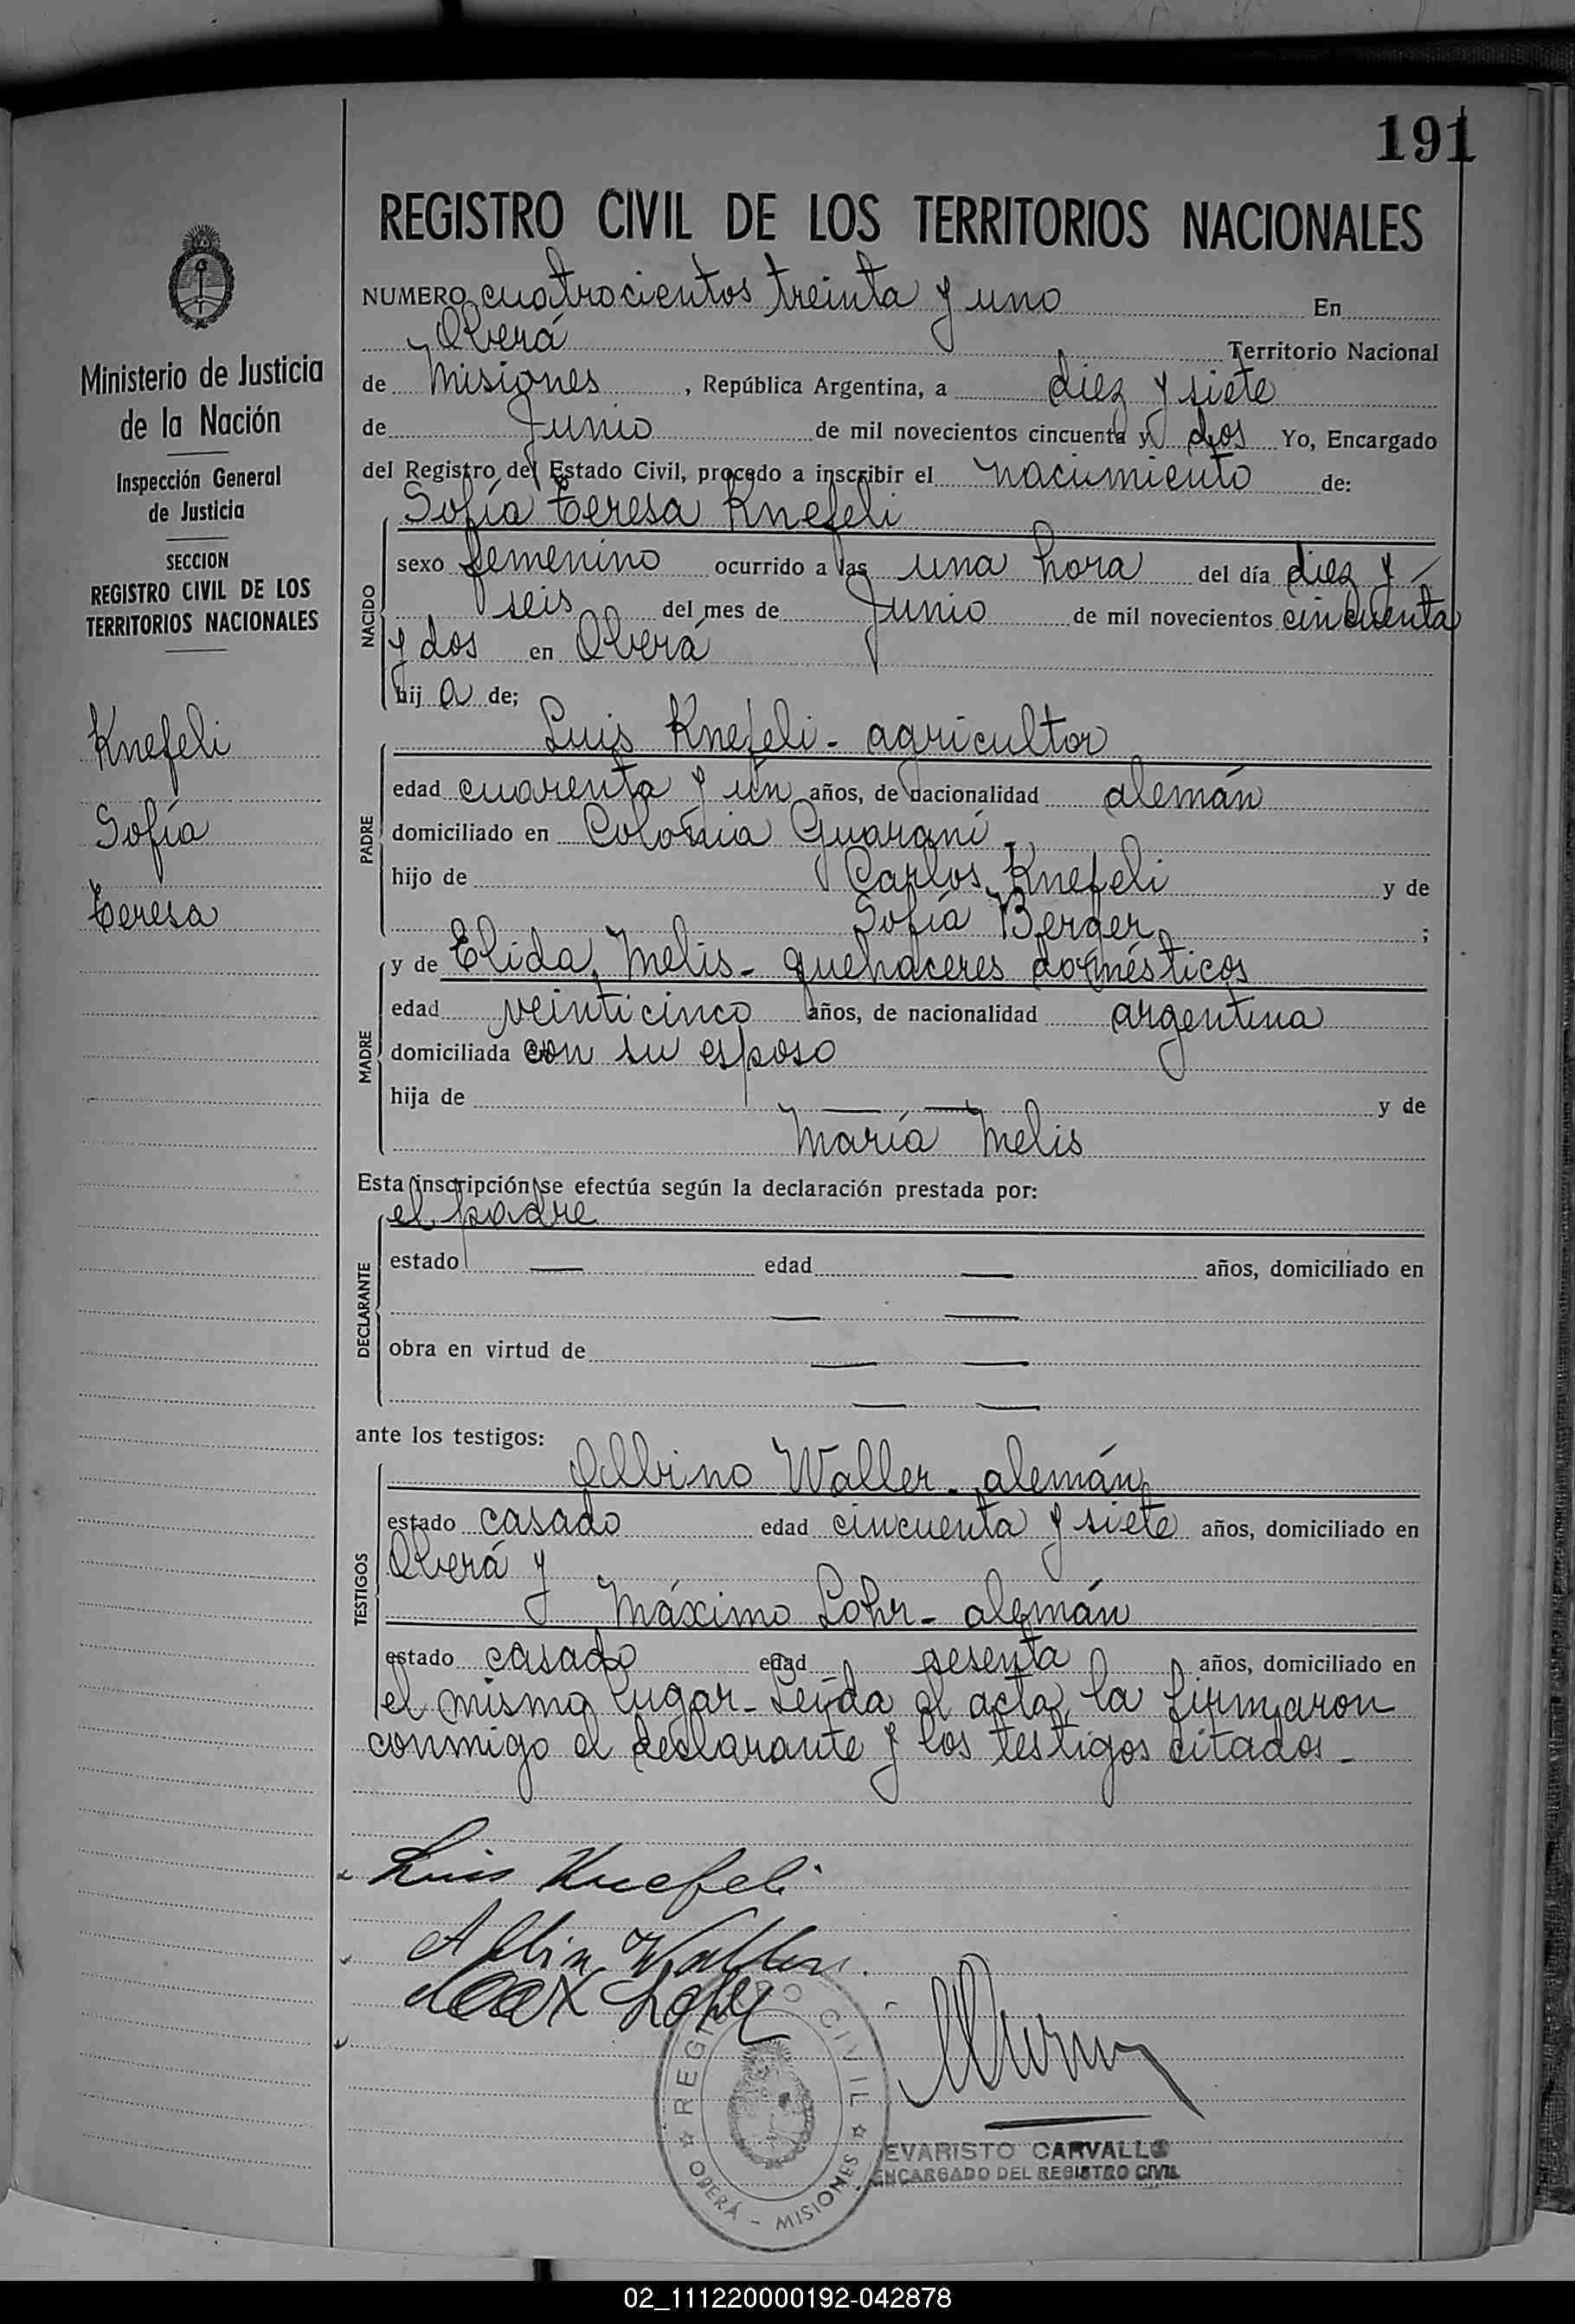 191
REGISTRO CIVIL DE LOS TERRITORIOS NACIONALES
Ministerio de Justicia
de la Nación
Inspección General
de Justicia
SECCION
REGISTRO CIVIL DE LOS
TERRITORIOS NACIONALES
Knefeli
Sofía
Teresa
NUMERO cuatrocientos treinta y uno En
Oberá Territorio Nacional
de Misiones, República Argentina, a diez y siete
de Junio de mil novecientos cincuenta y dos Yo, Encargado
del Registro del Estado Civil, procedo a inscribir el nacimiento de:
NACIDO
Sofía Teresa Knefeli
sexo femenino ocurrido a las una hora del día diez y
seis del mes de Junio de mil novecientos cincuenta
y dos en Oberá
hij a de;
PADRE
Luis Knefeli - agricultor
edad cuarenta y un años, de nacionalidad alemán
domiciliado en Colonia Guaraní -
hijo de Carlos Knefeli y de
Sofía Berger ;
MADRE
y de Elida Melis - quehaceres domésticos
edad veinticinco años, de nacionalidad argentina
domiciliada con su esposo
hija de — — y de
María Melis
Esta inscripción se efectúa según la declaración prestada por:
DECLARANTE
el padre
estado — edad — años, domiciliado en
— —
obra en virtud de — —
— —
ante los testigos:
TESTIGOS
Albino Waller - alemán
estado casado edad cincuenta y siete años, domiciliado en
Oberá y
Máximo Lohr - alemán
estado casado edad sesenta años, domiciliado en
el mismo lugar - Leída el acta, la firmaron
conmigo el declarante y los testigos citados -
Luis Knefeli
Albin Waller
Max Lohr
REGISTRO CIVIL
OBERÁ - MISIONES
EVARISTO CARVALLO
ENCARGADO DEL REGISTRO CIVIL
02_111220000192-042878